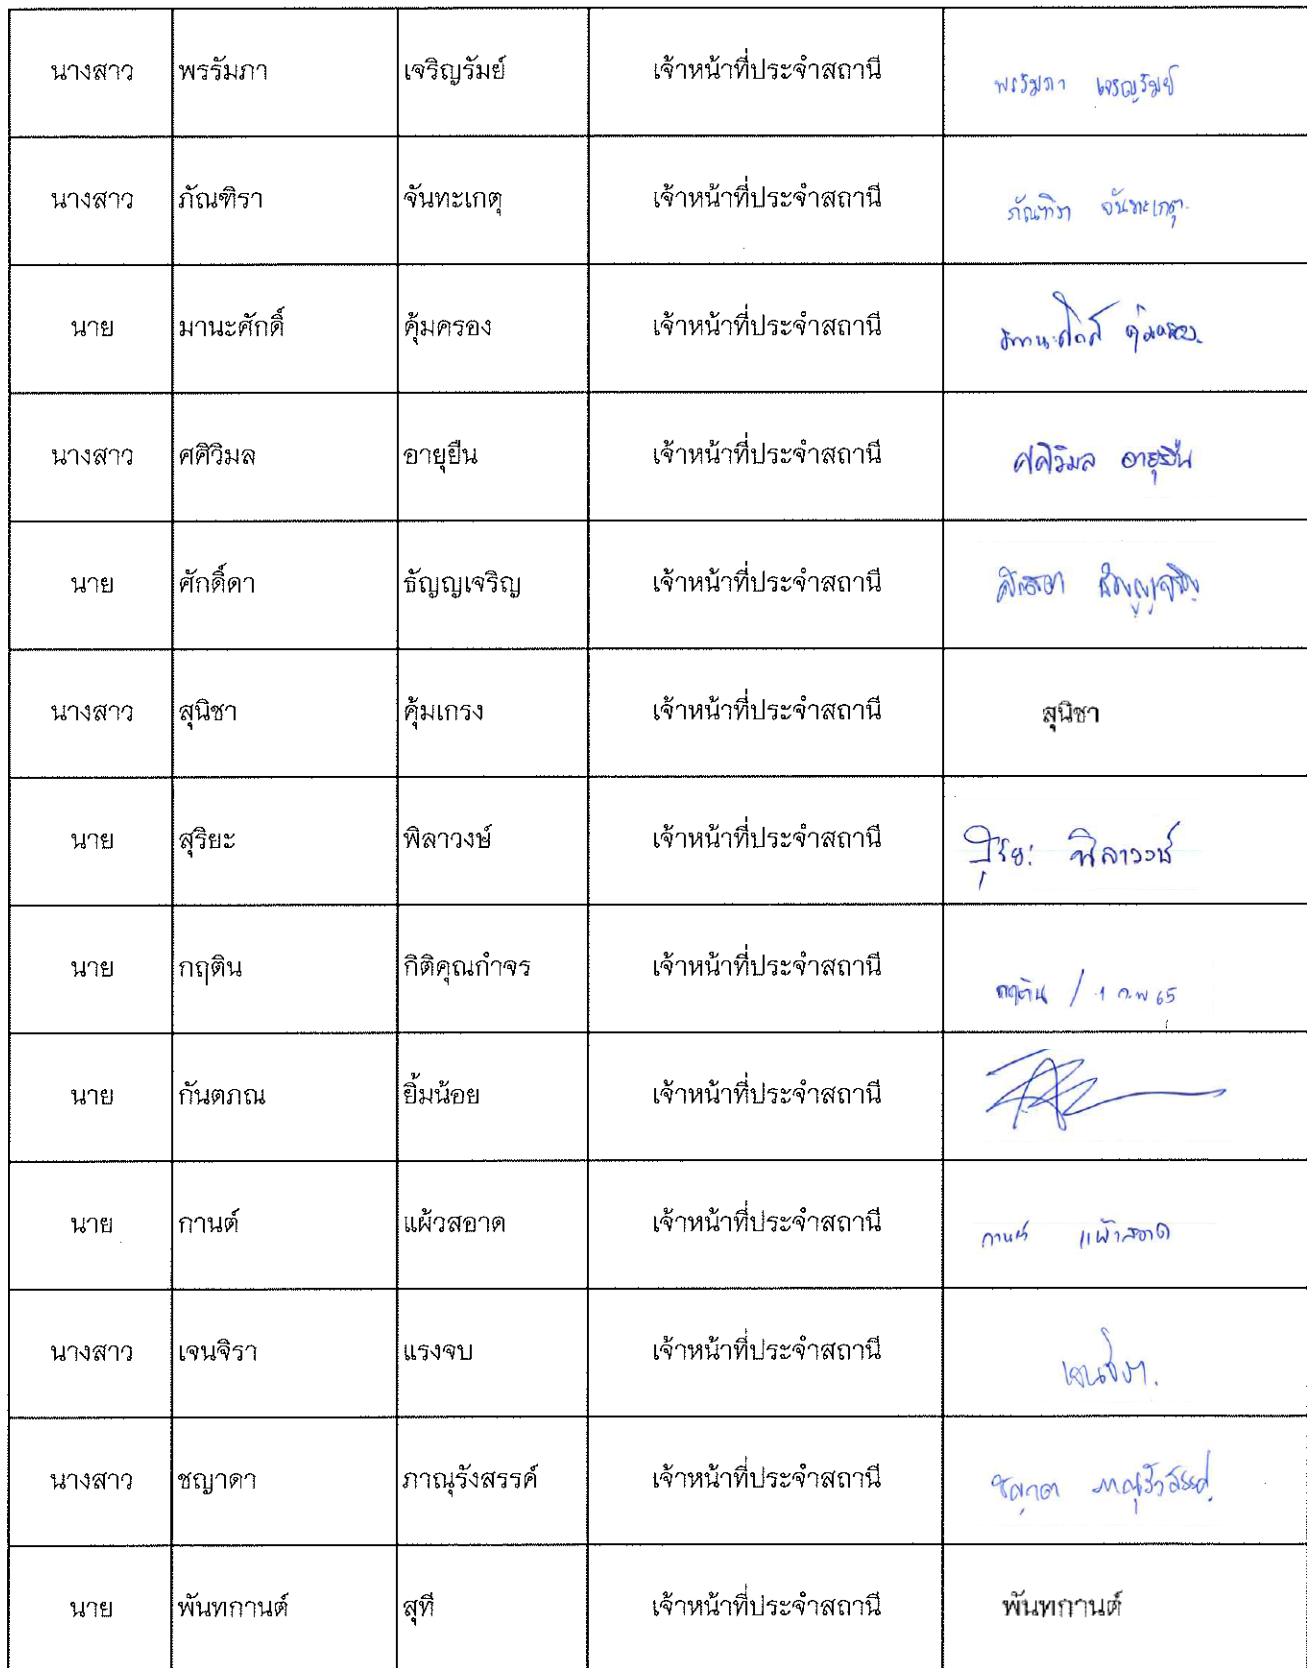 นางสาว พรรัมภา เจริญรัมย์ เจ้าหน้าที่ประจำสถานี พรรัมภา เจริญรัมย์
นางสาว ภัณฑิรา จันทะเกตุ เจ้าหน้าที่ประจำสถานี ภัณฑิรา จันทะเกตุ
นาย มานะศักดิ์ คุ้มครอง เจ้าหน้าที่ประจำสถานี มานะศักดิ์ คุ้มครอง
นางสาว ศศิวิมล อายุยืน เจ้าหน้าที่ประจำสถานี ศศิวิมล อายุยืน
นาย ศักดิ์ดา ธัญญเจริญ เจ้าหน้าที่ประจำสถานี ศักดิ์ดา ธัญญเจริญ
นางสาว สุนิชา คุ้มเกรง เจ้าหน้าที่ประจำสถานี สุนิชา
นาย สุริยะ พิลาวงษ์ เจ้าหน้าที่ประจำสถานี สุริยะ พิลาวงษ์
นาย กฤติน กิติคุณกำจร เจ้าหน้าที่ประจำสถานี กฤติน / 1 ก.พ 65
นาย กันตภณ ยิ้มน้อย เจ้าหน้าที่ประจำสถานี
นาย กานต์ แผ้วสอาด เจ้าหน้าที่ประจำสถานี กานต์ แผ้วสอาด
นางสาว เจนจิรา แรงจบ เจ้าหน้าที่ประจำสถานี เจนจิรา.
นางสาว ชญาดา ภาณุรังสรรค์ เจ้าหน้าที่ประจำสถานี ชญาดา ภาณุรังสรรค์
นาย พันทกานต์ สุที เจ้าหน้าที่ประจำสถานี พันทกานต์